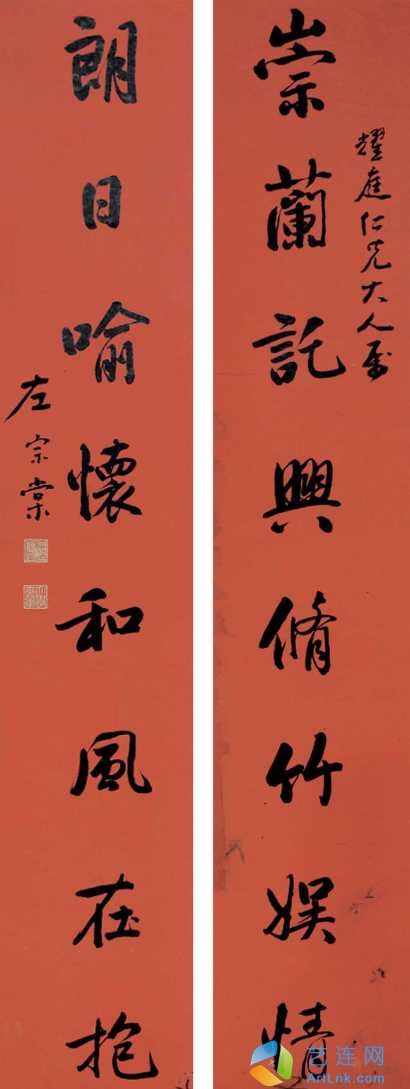 耀庭仁兄大人屬
崇蘭託興脩竹娛情
朗日喻懷和風在抱
左宗棠
艺连网
ArtLnk.com